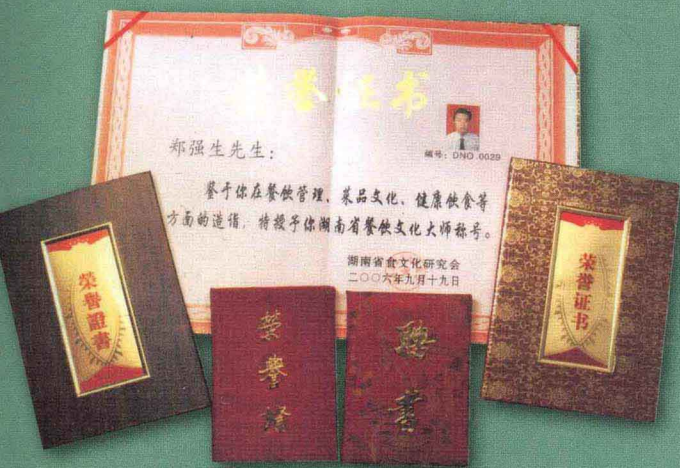 荣誉证书
郑强生先生：
编号：DNO.0029
鉴于你在餐饮管理、菜品文化、健康饮食等
方面的造诣，特授予你湖南省餐饮文化大师称号。
湖南省食文化研究会
二〇〇六年九月十九日
荣誉證書
荣誉證
聘書
荣誉证书